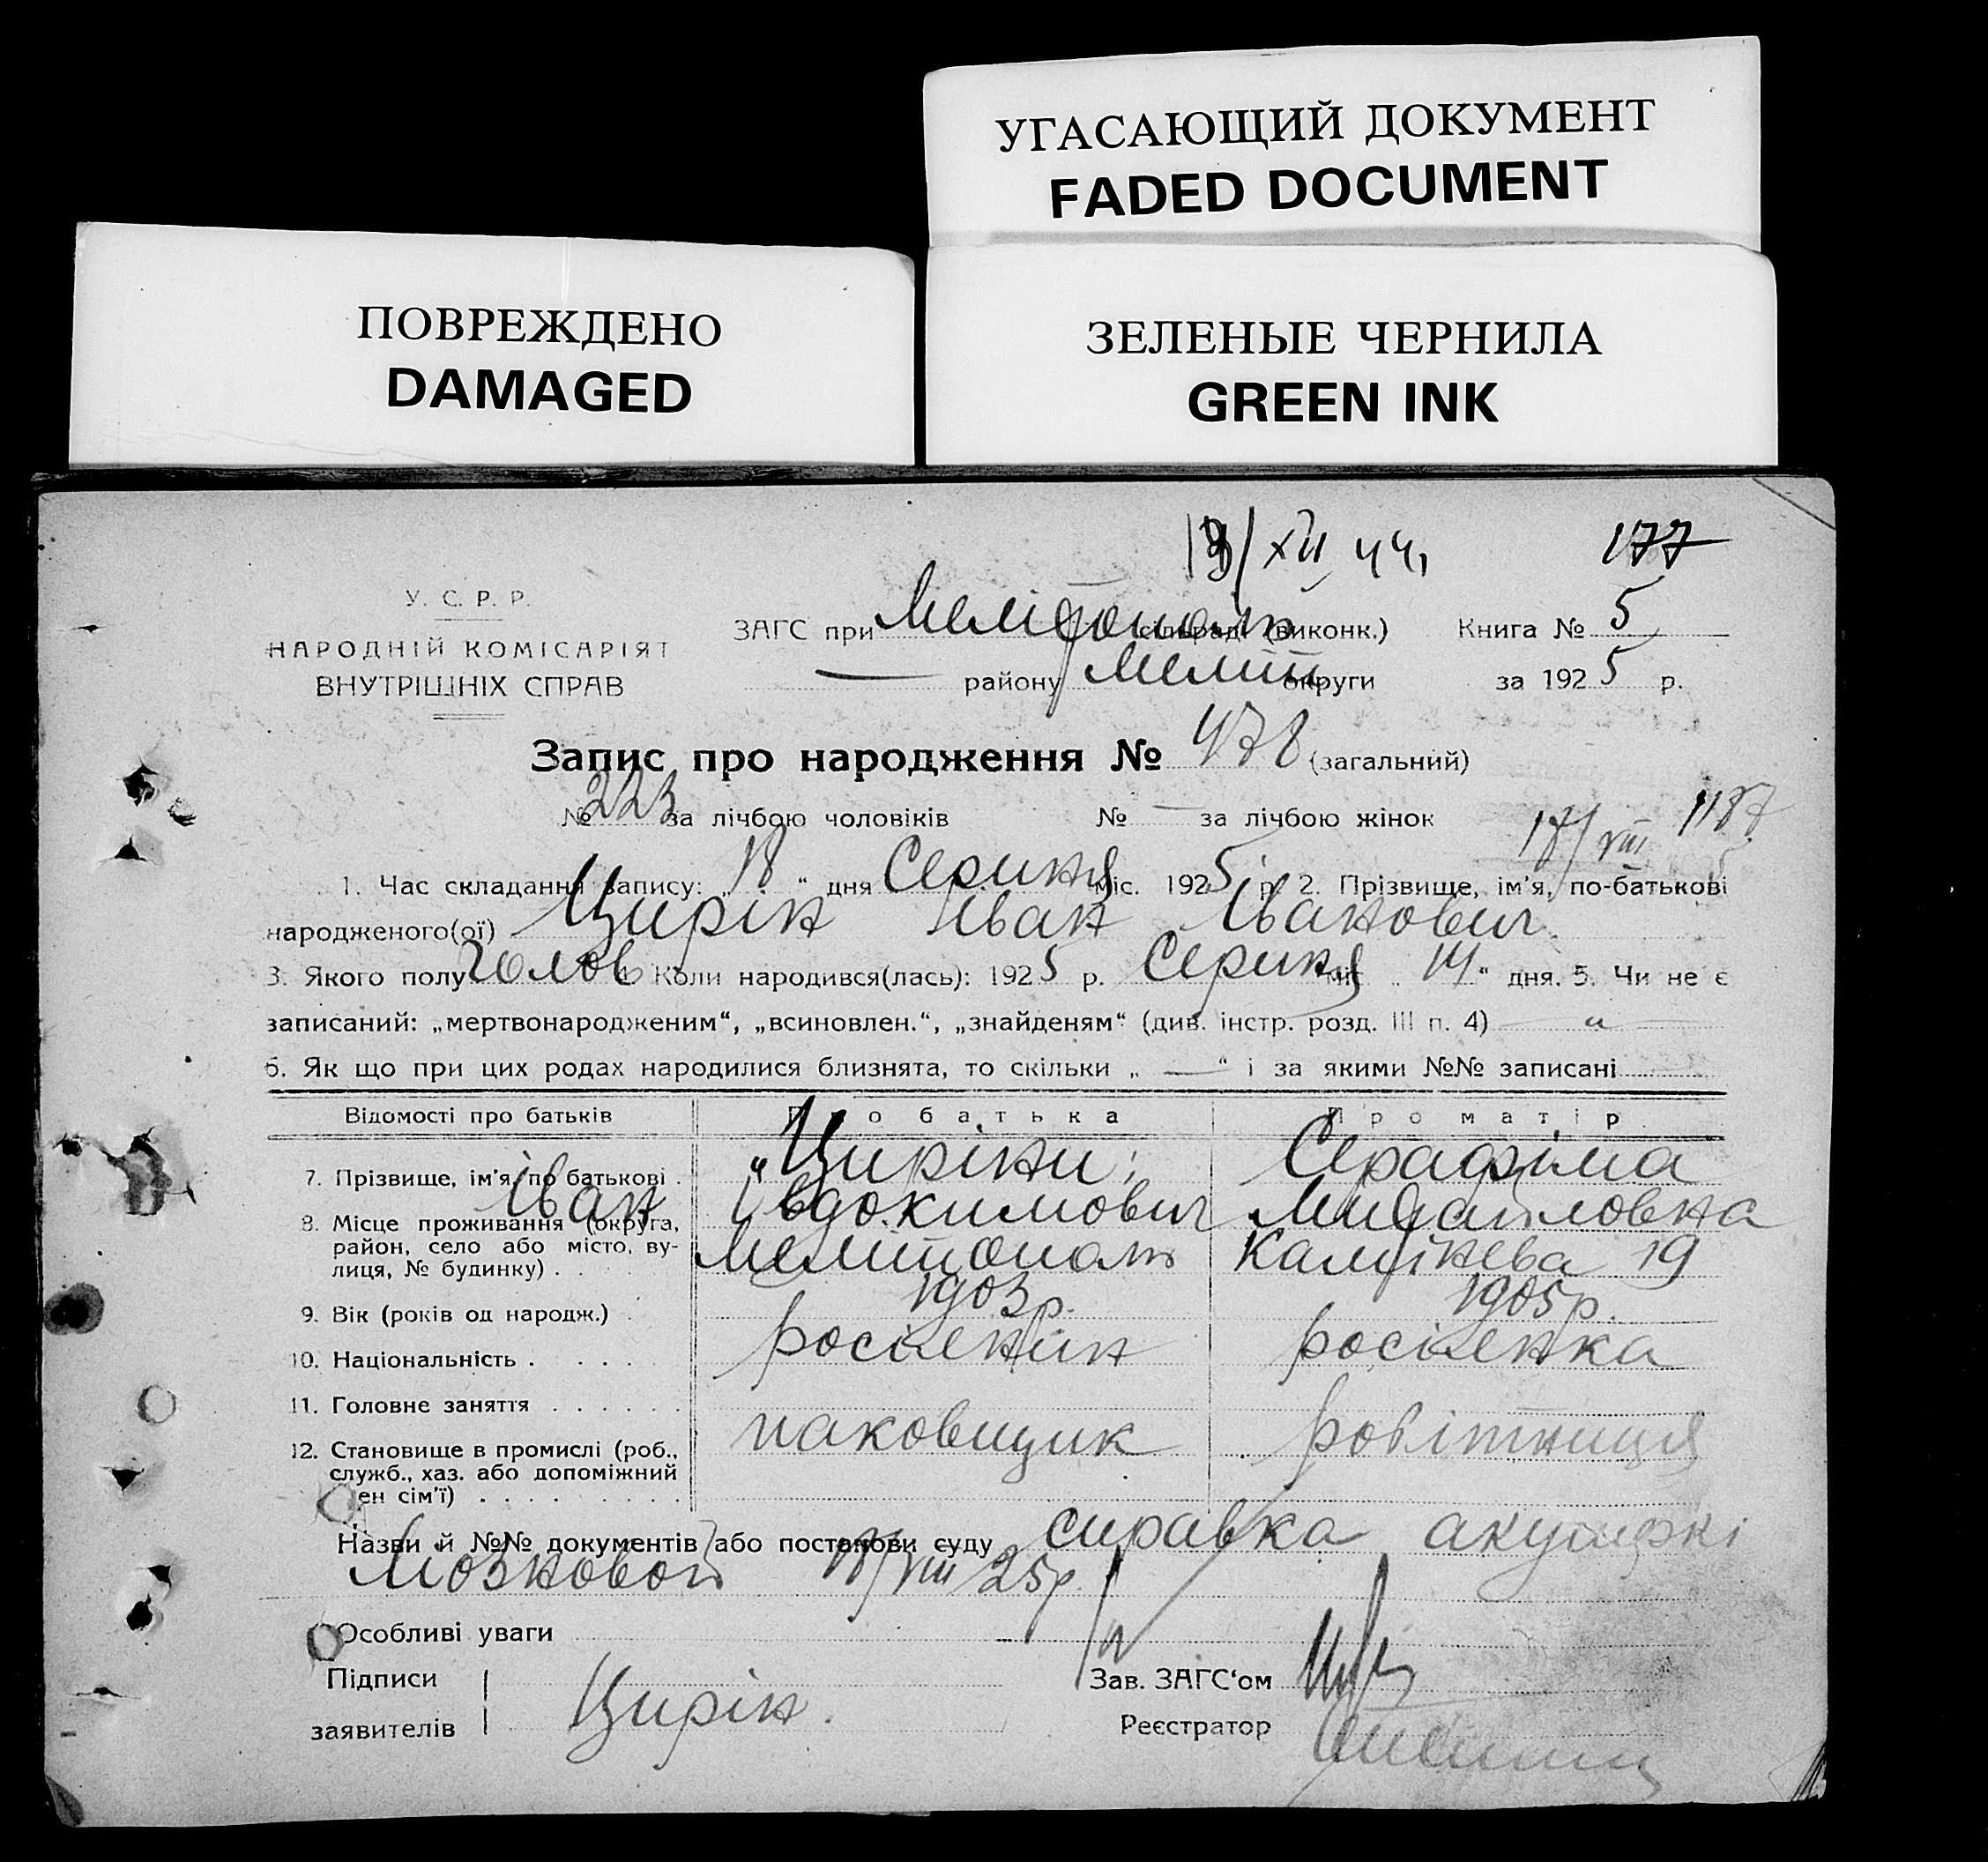 УГАСАЮЩИЙ ДОКУМЕНТ
FADED DOCUMENT
ПОВРЕЖДЕНО
DAMAGED
ЗЕЛЕНЫЕ ЧЕРНИЛА
GREEN INK
/XII 44 177
У. С. Р. Р.
НАРОДНІЙ КОМІСАРІЯТ
ВНУТРІШНІХ СПРАВ
ЗАГС при Мелітополь сільраді (виконк.) Книга № 5
— району Меліт округи за 1925 р.
Запис про народження № 478 (загальний)
№ 223 за лічбою чоловіків № — за лічбою жінок
17/VIII 1187
1. Час складання запису: „18“ дня Серпня міс. 1925 р. 2. Прізвище, ім'я, по-батькові
народженого(ої) Цирін Іван Іванович
3. Якого полу чолов 4. Коли народився(лась): 1925 р. Серпня міс. „14“ дня. 5. Чи не є
записаний: „мертвонародженим“, „всиновлен.“, „знайденям“ (див. інстр. розд. III п. 4) — „ —
6. Як що при цих родах народилися близнята, то скільки „ — “ і за якими №№ записані
Відомості про батьків Про батька Про матір
7. Прізвище, ім'я, по батькові . „Циріни; Серафіма
Іван Івдокимович Михайловна
8. Місце проживання (округа,
район, село або місто, ву-
лиця, № будинку) . . Мелітополь 19
9. Вік (років од народж.) . 1903р. 1905р.
10. Національність . . . . росіянин росіянка
11. Головне заняття . . . . . .
12. Становище в промислі (роб., паковщик робітниця
служб., хаз. або допоміжний
ен сім'ї) . . . . . . . . .
Назви й №№ документів або постанови суду справка акушеркі
Мозновой 18/VIII 25р
Особливі уваги
Підписи
заявителів Цирін.
Зав. ЗАГС'ом
Реєстратор